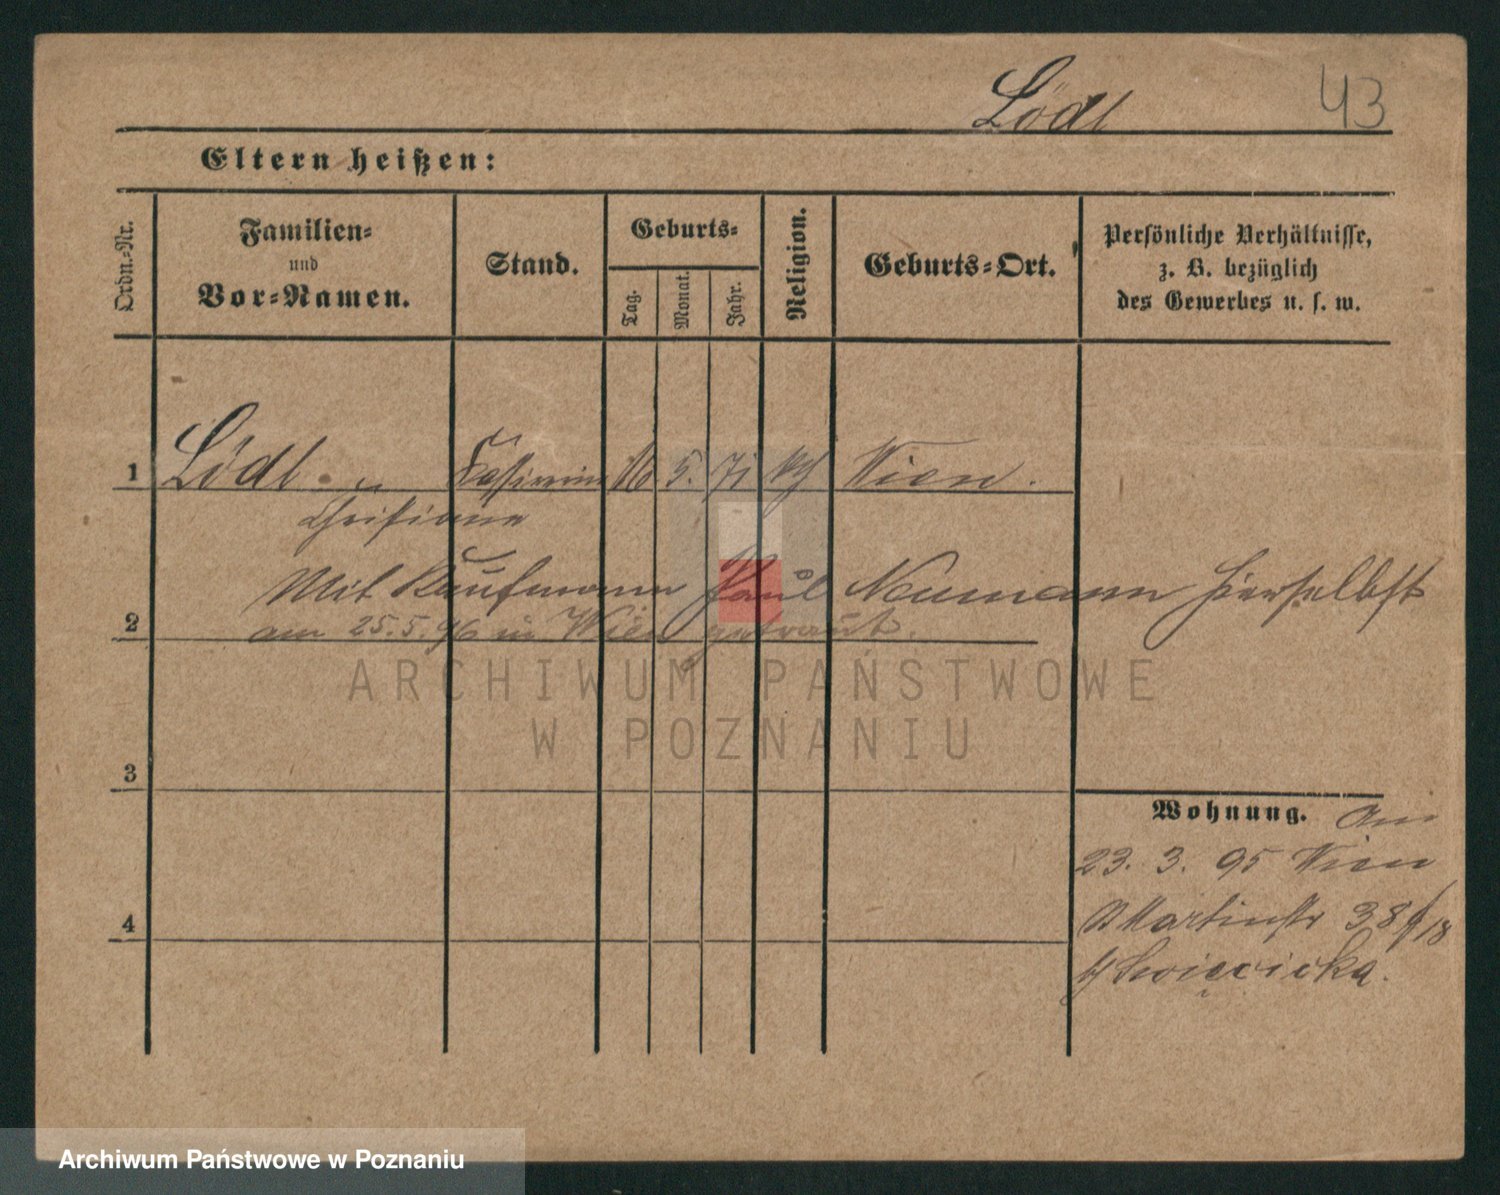 Lödl
43
Eltern heißen:
Ordn.-Nr.
Familien-
und
Vor-Namen.
Stand.
Geburts-
Tag.
Monat.
Jahr.
Religion.
Geburts-Ort.
Persönliche Verhältnisse,
z. B. bezüglich
des Gewerbes u. s. w.
1 Lödl Kassirerin 5. 71 Wien.
Christiane
Mit Kaufmann Paul Neumann hierselbst
2 am 25.5.96 in Wien getraut.
ARCHIWUM PAŃSTWOWE
W POZNANIU
3
Wohnung. Am
23. 3. 95 Wien
4 Martinstr 38
b/ Swięcicka.
Archiwum Państwowe w Poznaniu